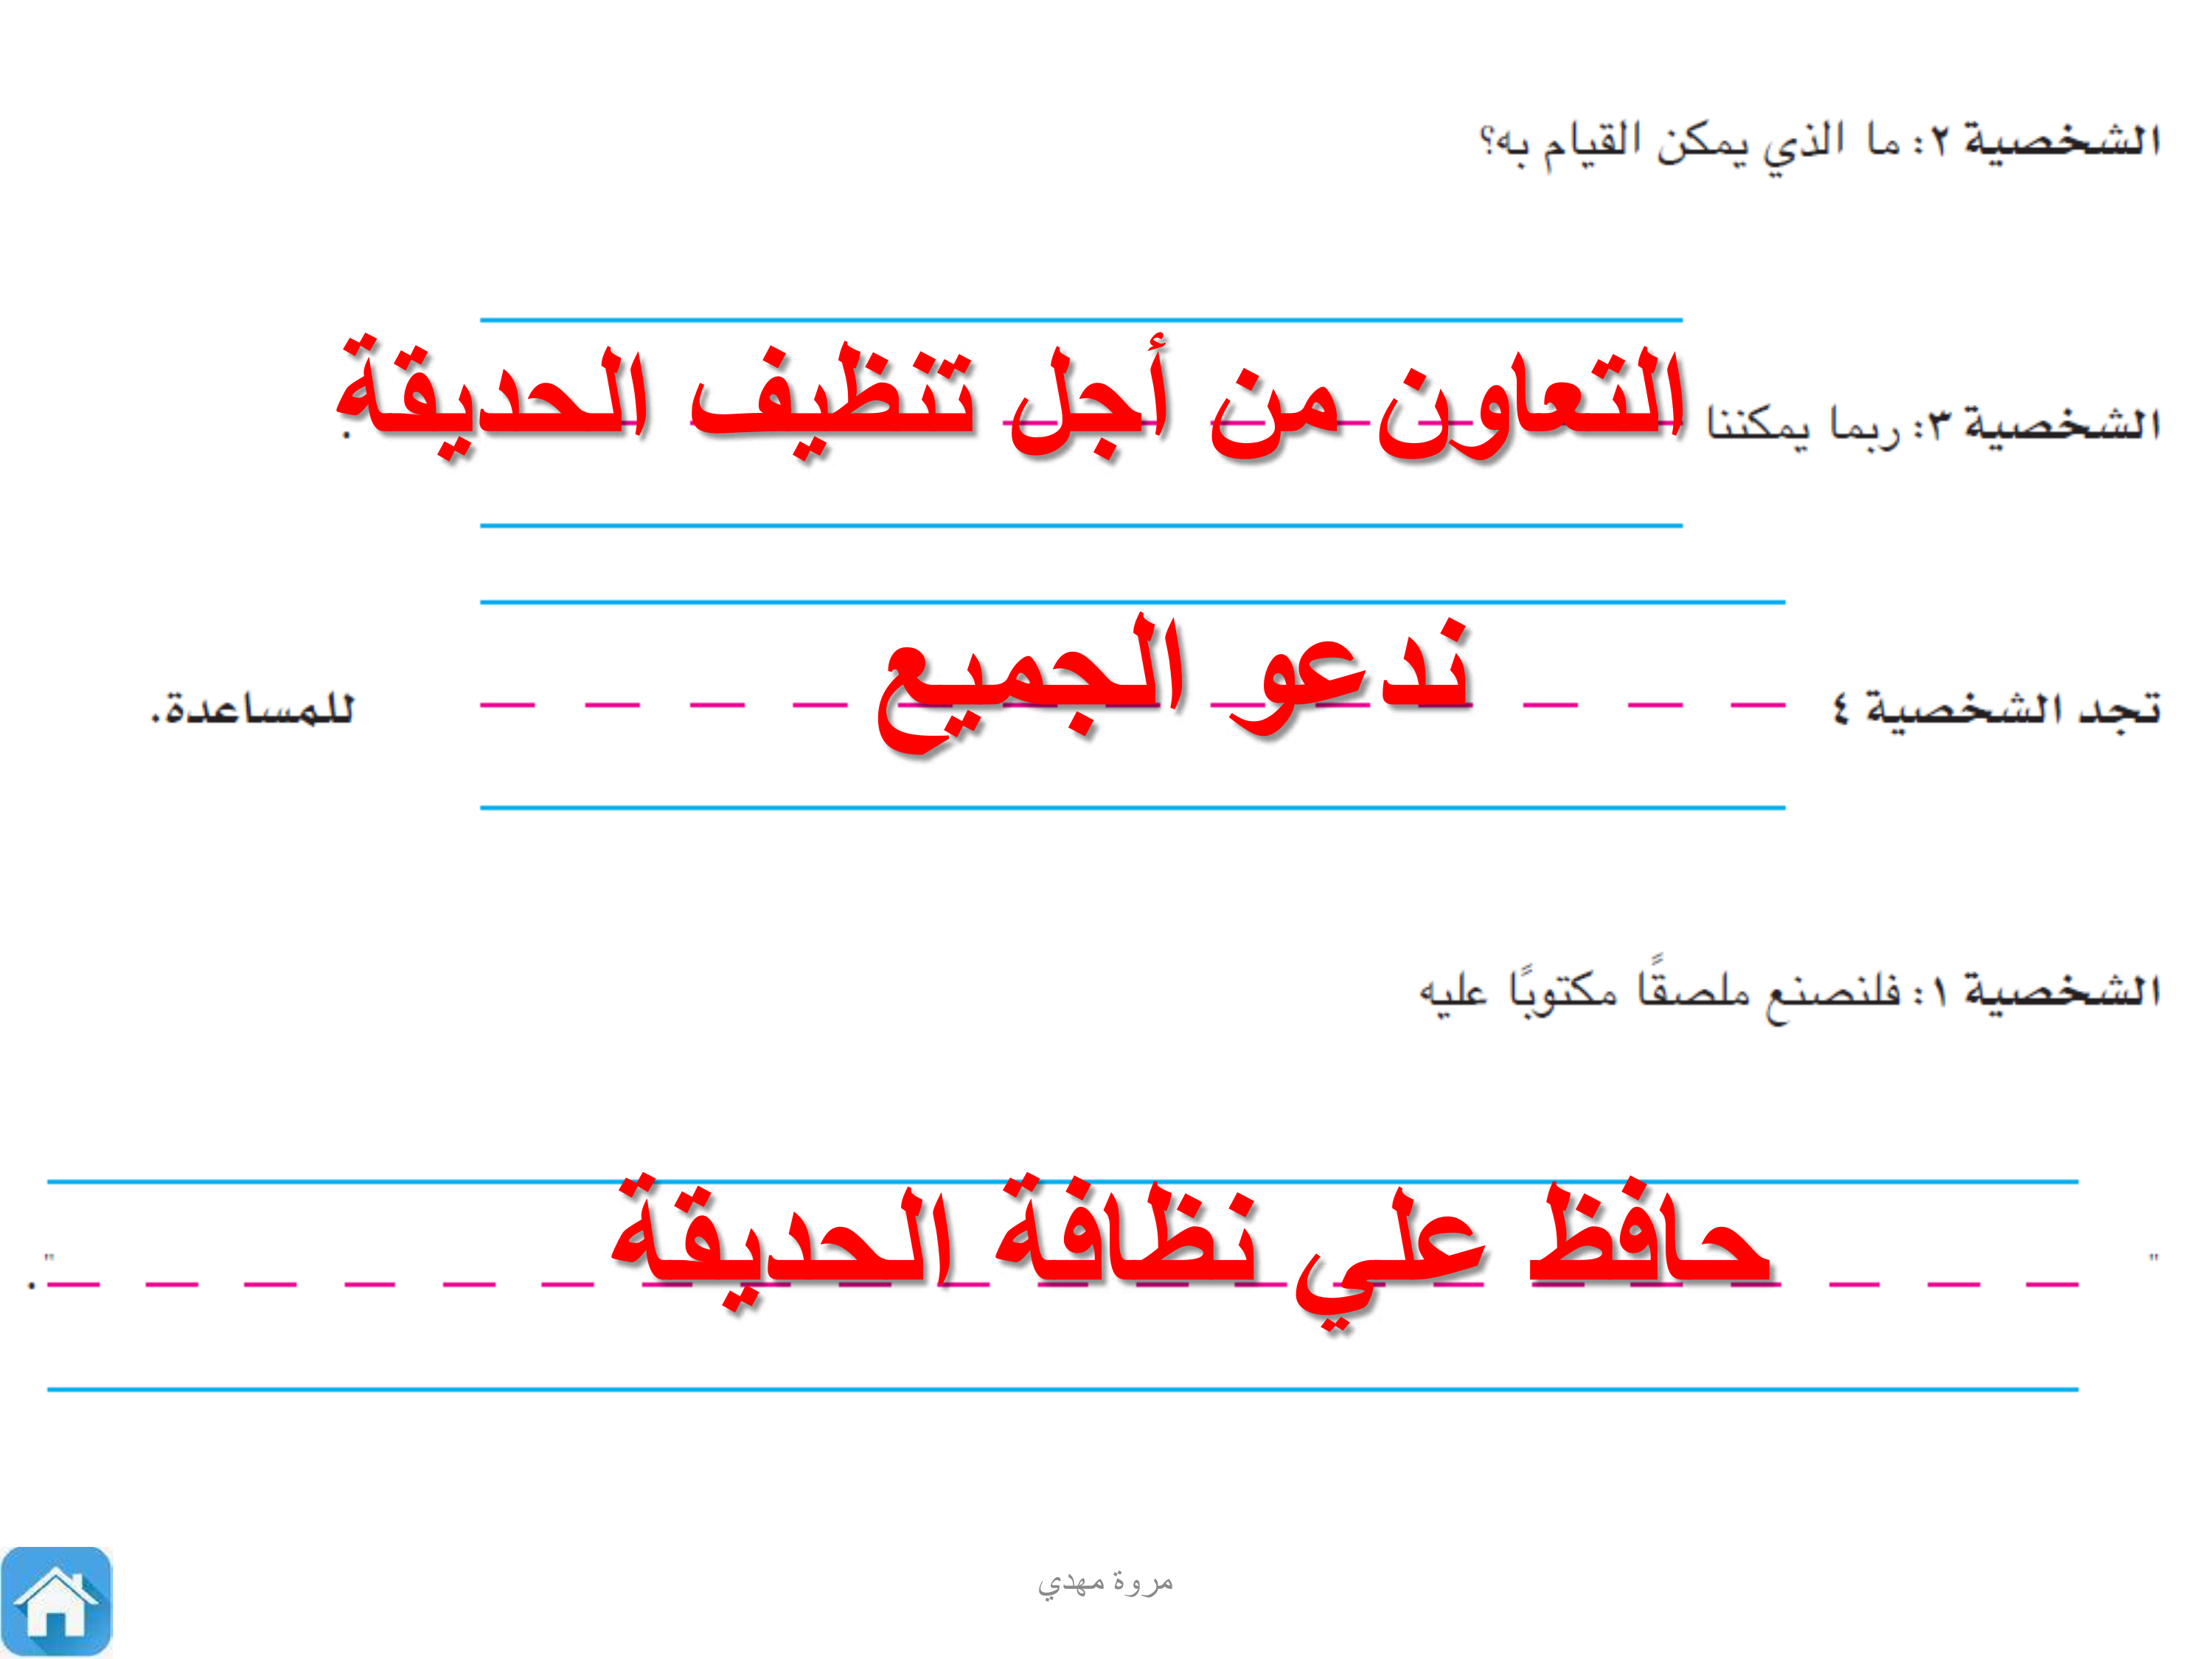 الشخصية ٢: ما الذي يمكن القيام به؟
الشخصية ٣: ربما يمكننا التعاون من أجل تنظيف الحديقة .
تجد الشخصية ٤ ندعو الجميع للمساعدة.
الشخصية ١: فلنصنع ملصقًا مكتوبًا عليه
" حافظ علي نظافة الحديقة ".
مروة مهدي